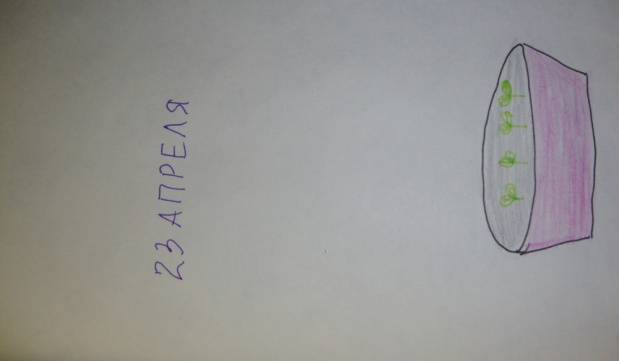 23 АПРЕЛЯ